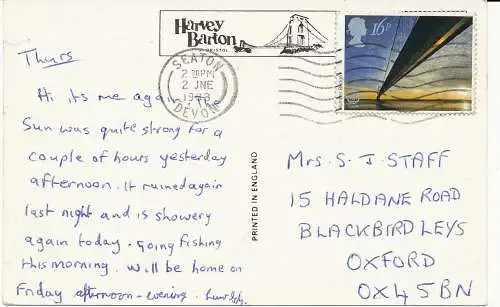 Thurs
Hi its me again. The
Sun was quite strong for a
couple of hours yesterday
afternoon. It rained again
last night and is showery
again today. Going fishing
this morning. Will be home on
Friday afternoon-evening.
Harvey
Barton
OF BRISTOL
SEATON
2 30PM
2 JNE
1983
DEVON
16p
PRINTED IN ENGLAND
Mrs. S. J STAFF
15 HALDANE ROAD
BLACKBIRD LEYS
OXFORD
OX4 5BN